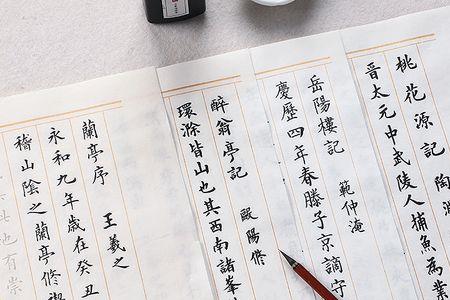 桃花源記 陶淵
晉太元中武陵人捕魚為業
岳陽樓記 範仲淹
慶歷四年春滕子京謫守
醉翁亭記 歐陽修
環滁皆山也其西南諸峯
蘭亭序 王羲之
永和九年歲在癸丑
稽山陰之蘭亭修禊
此地也有崇